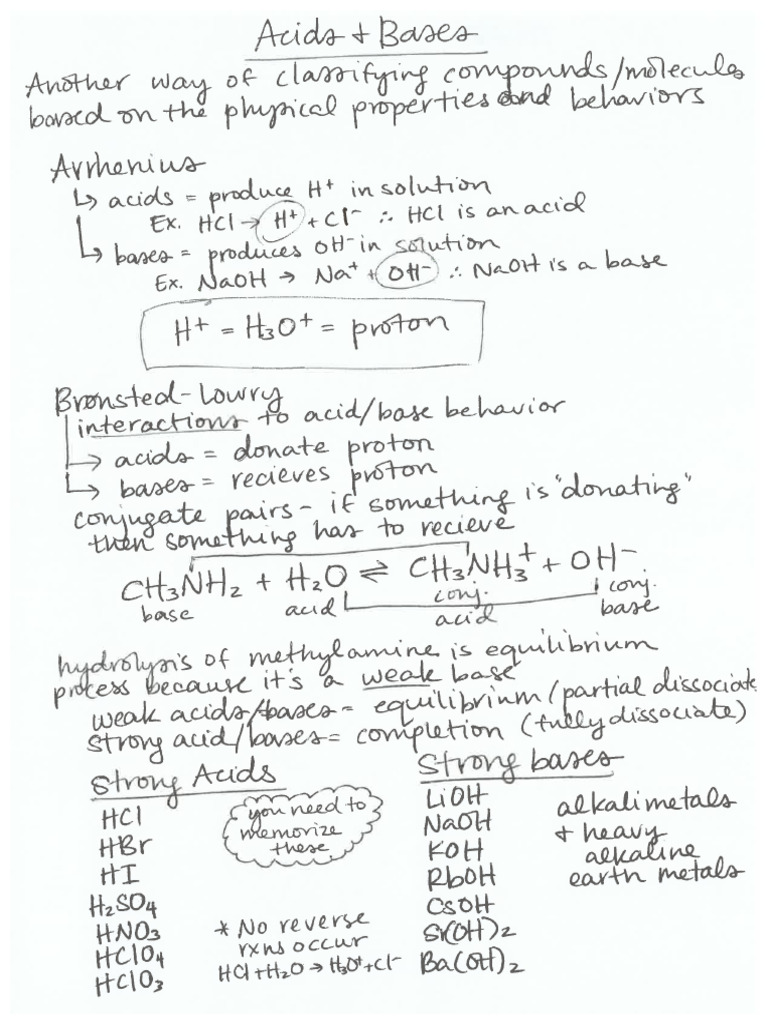 Acids + Bases
Another way of classifying compounds/molecules
based on the physical properties and behaviors
Arrhenius
↳ acids = produce H⁺ in solution
Ex. HCl → H⁺ + Cl⁻ ∴ HCl is an acid
↳ bases = produces OH⁻ in solution
Ex. NaOH → Na⁺ + OH⁻ ∴ NaOH is a base
H⁺ = H₃O⁺ = proton
Bronsted-Lowry
interactions to acid/base behavior
→ acids = donate proton
↳ bases = recieves proton
conjugate pairs - if something is "donating"
then something has to recieve
CH₃NH₂ + H₂O ⇌ CH₃NH₃⁺ + OH⁻
base acid conj. acid conj. base
hydrolysis of methylamine is equilibrium
process because it's a weak base
weak acids/bases = equilibrium/partial dissociate
strong acid/bases = completion (fully dissociate)
Strong Acids
HCl
HBr
HI
H₂SO₄
HNO₃
HClO₄
HClO₃
you need to
memorize
these
* No reverse
rxns occur
HCl + H₂O → H₃O⁺ + Cl⁻
Strong bases
LiOH
NaOH
KOH
RbOH
CsOH
Sr(OH)₂
Ba(OH)₂
alkali metals
+ heavy
alkaline
earth metals